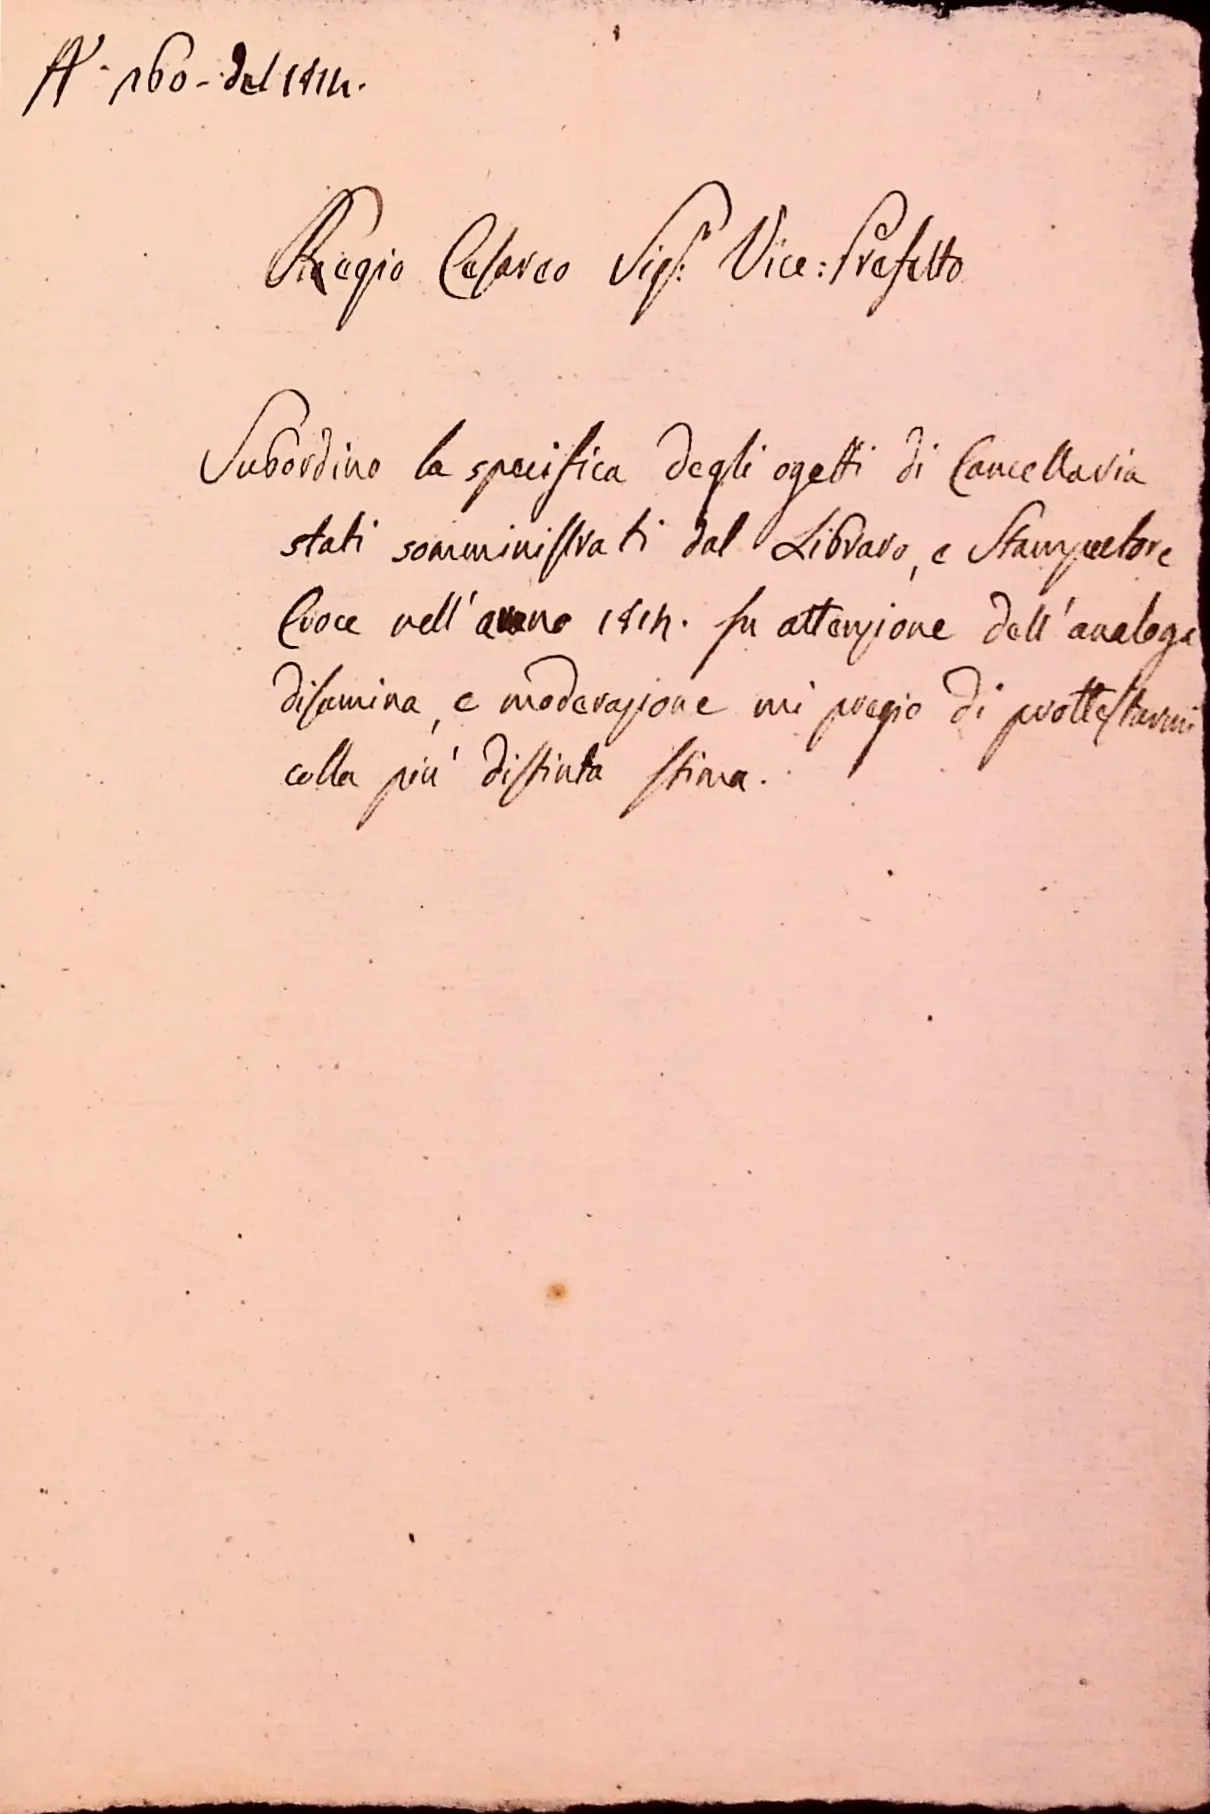 N.° 160 - del 1814.
Reegio Cesareo Sigr: Vice=Prefetto
Subordino la specifica degli ogetti di Cancellaria
stati somministrati dal Libraro, e Stampatore
Croce nell'anno 1814. In attenzione dell'analoga
disamina, e moderazione mi pregio di prottestarmi
colla più distinta stima.